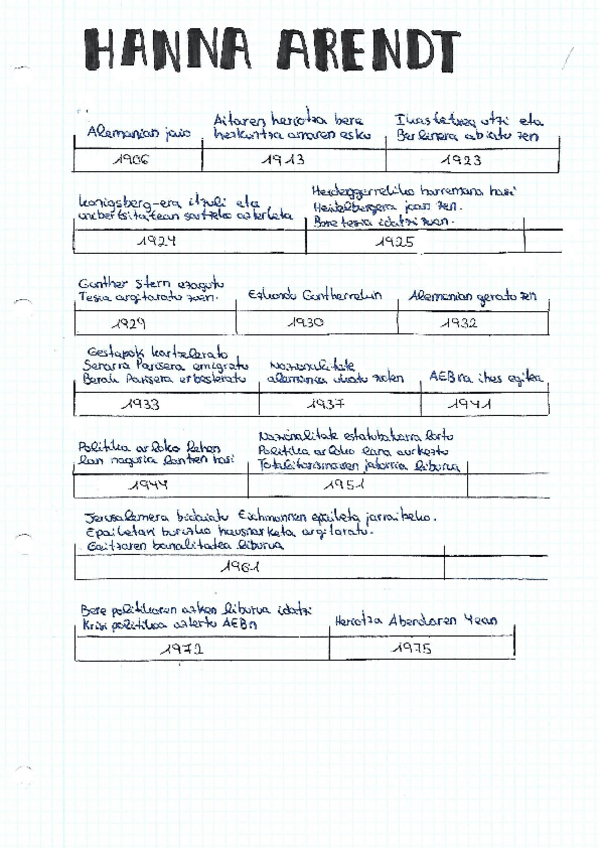 HANNA ARENDT
Alemanian jaio
Aitaren heriotza bere
hezkuntza amaren esku
Ikastetxea utzi eta
Berlinera abiatu zen
1906 1913 1923
Konigsberg-era itzuli eta
unibertsitatean sartzeko azterketa
Heideggerrekiko harremana hasi
Heidelbergera joan zen.
Bere tesia idatzi zuen.
1924 1925
Gunther Stern ezagutu
Tesia argitaratu zuen.
Ezkondu Guntherrekin
Alemanian geratu zen
1929 1930 1932
Gestapok kartzelerato
Senarra Parisera emigratu
Berak Parisera erbesteratu
Nazionalitate
alemana ukatu zioten
AEBra ihes egitea
1933 1937 1941
Politika arloko lehen
lan nagusia lantzen hasi
Nazionalitate estatubatuarra lortu
Politika arloko lana aurkeztu
Totalitarismoaren jatorria liburua
1944 1951
Jerusalemera bidaiatu Eichmannen epaiketa jarraitzeko.
Epaiketari buruzko hausnarketa argitaratu.
Gaitzaren banalitatea liburua
1961
Bere politikaren azken liburua idatzi
Krisi politikoa aztertu AEBn
Heriotza Abenduaren 4ean
1972 1975